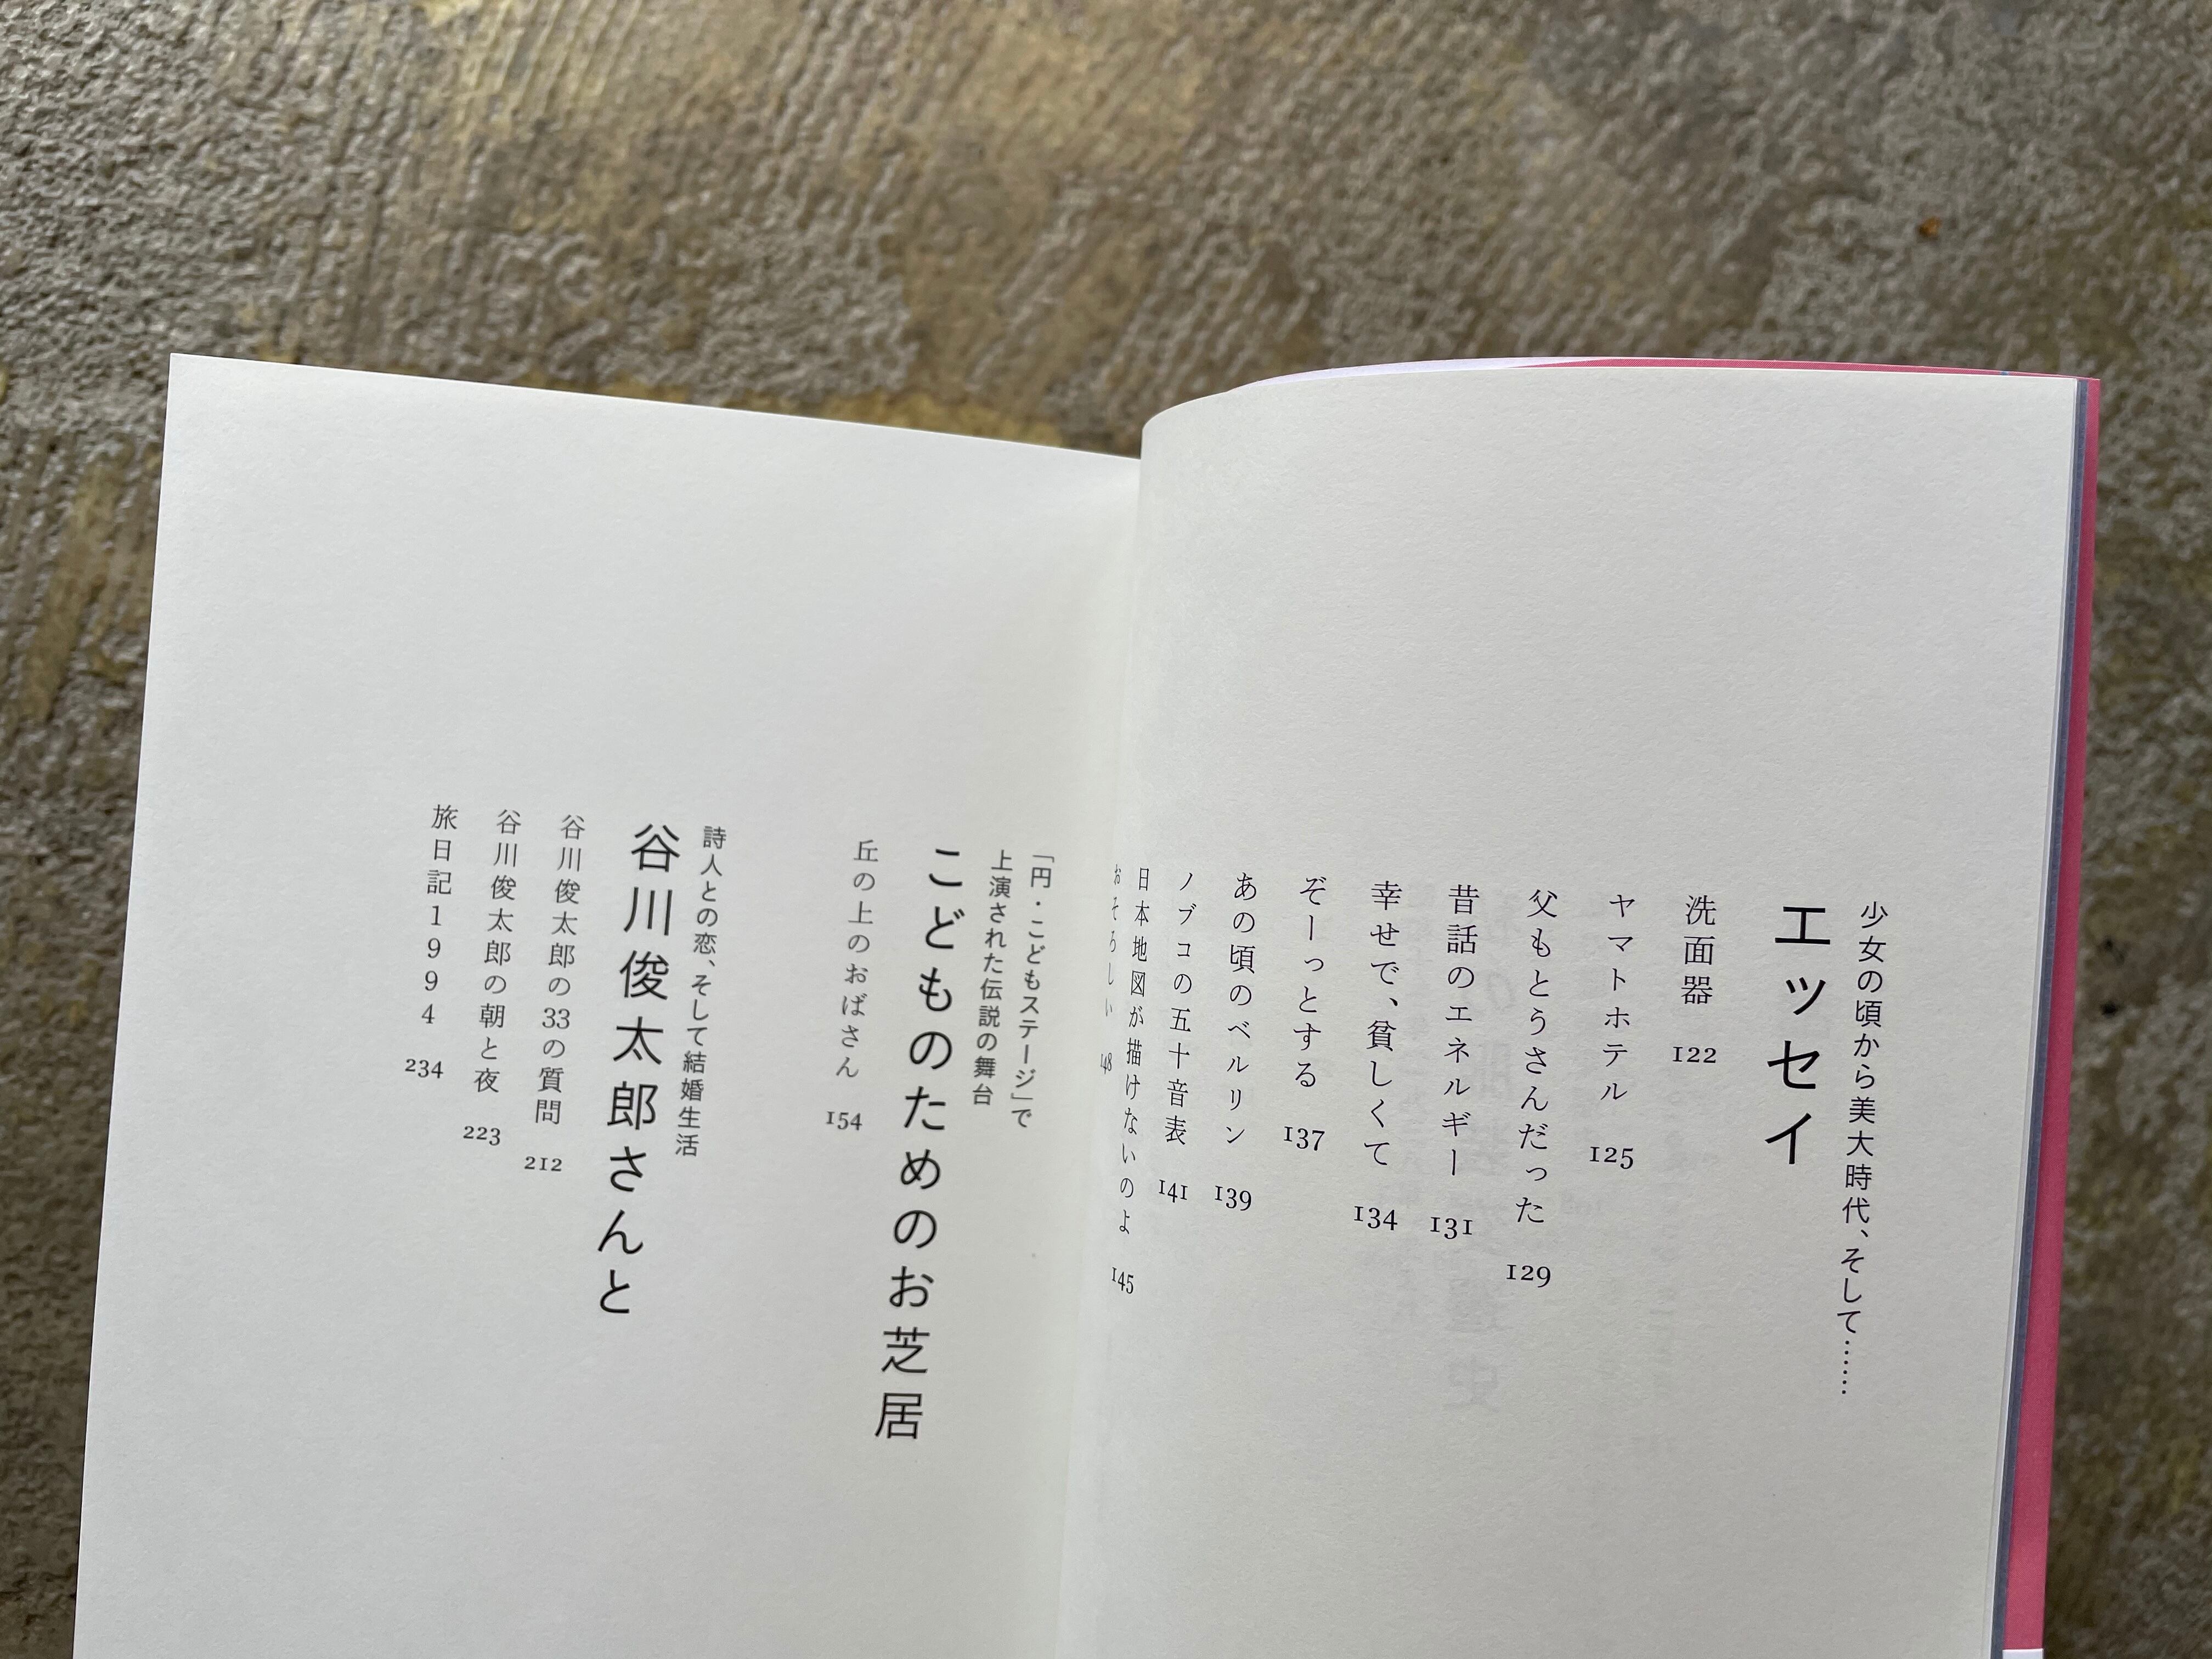 少女の頃から美大時代、そして……
エッセイ
洗面器 122
ヤマトホテル 125
父もとうさんだった 129
昔話のエネルギー 131
幸せで、貧しくて 134
ぞーっとする 137
あの頃のベルリン 139
ノブコの五十音表 141
日本地図が描けないのよ 145
おそろしい 148
「円・こどもステージ」で
上演された伝説の舞台
こどものためのお芝居
丘の上のおばさん 154
詩人との恋、そして結婚生活
谷川俊太郎さんと
谷川俊太郎の33の質問 212
谷川俊太郎の朝と夜 223
旅日記1994 234